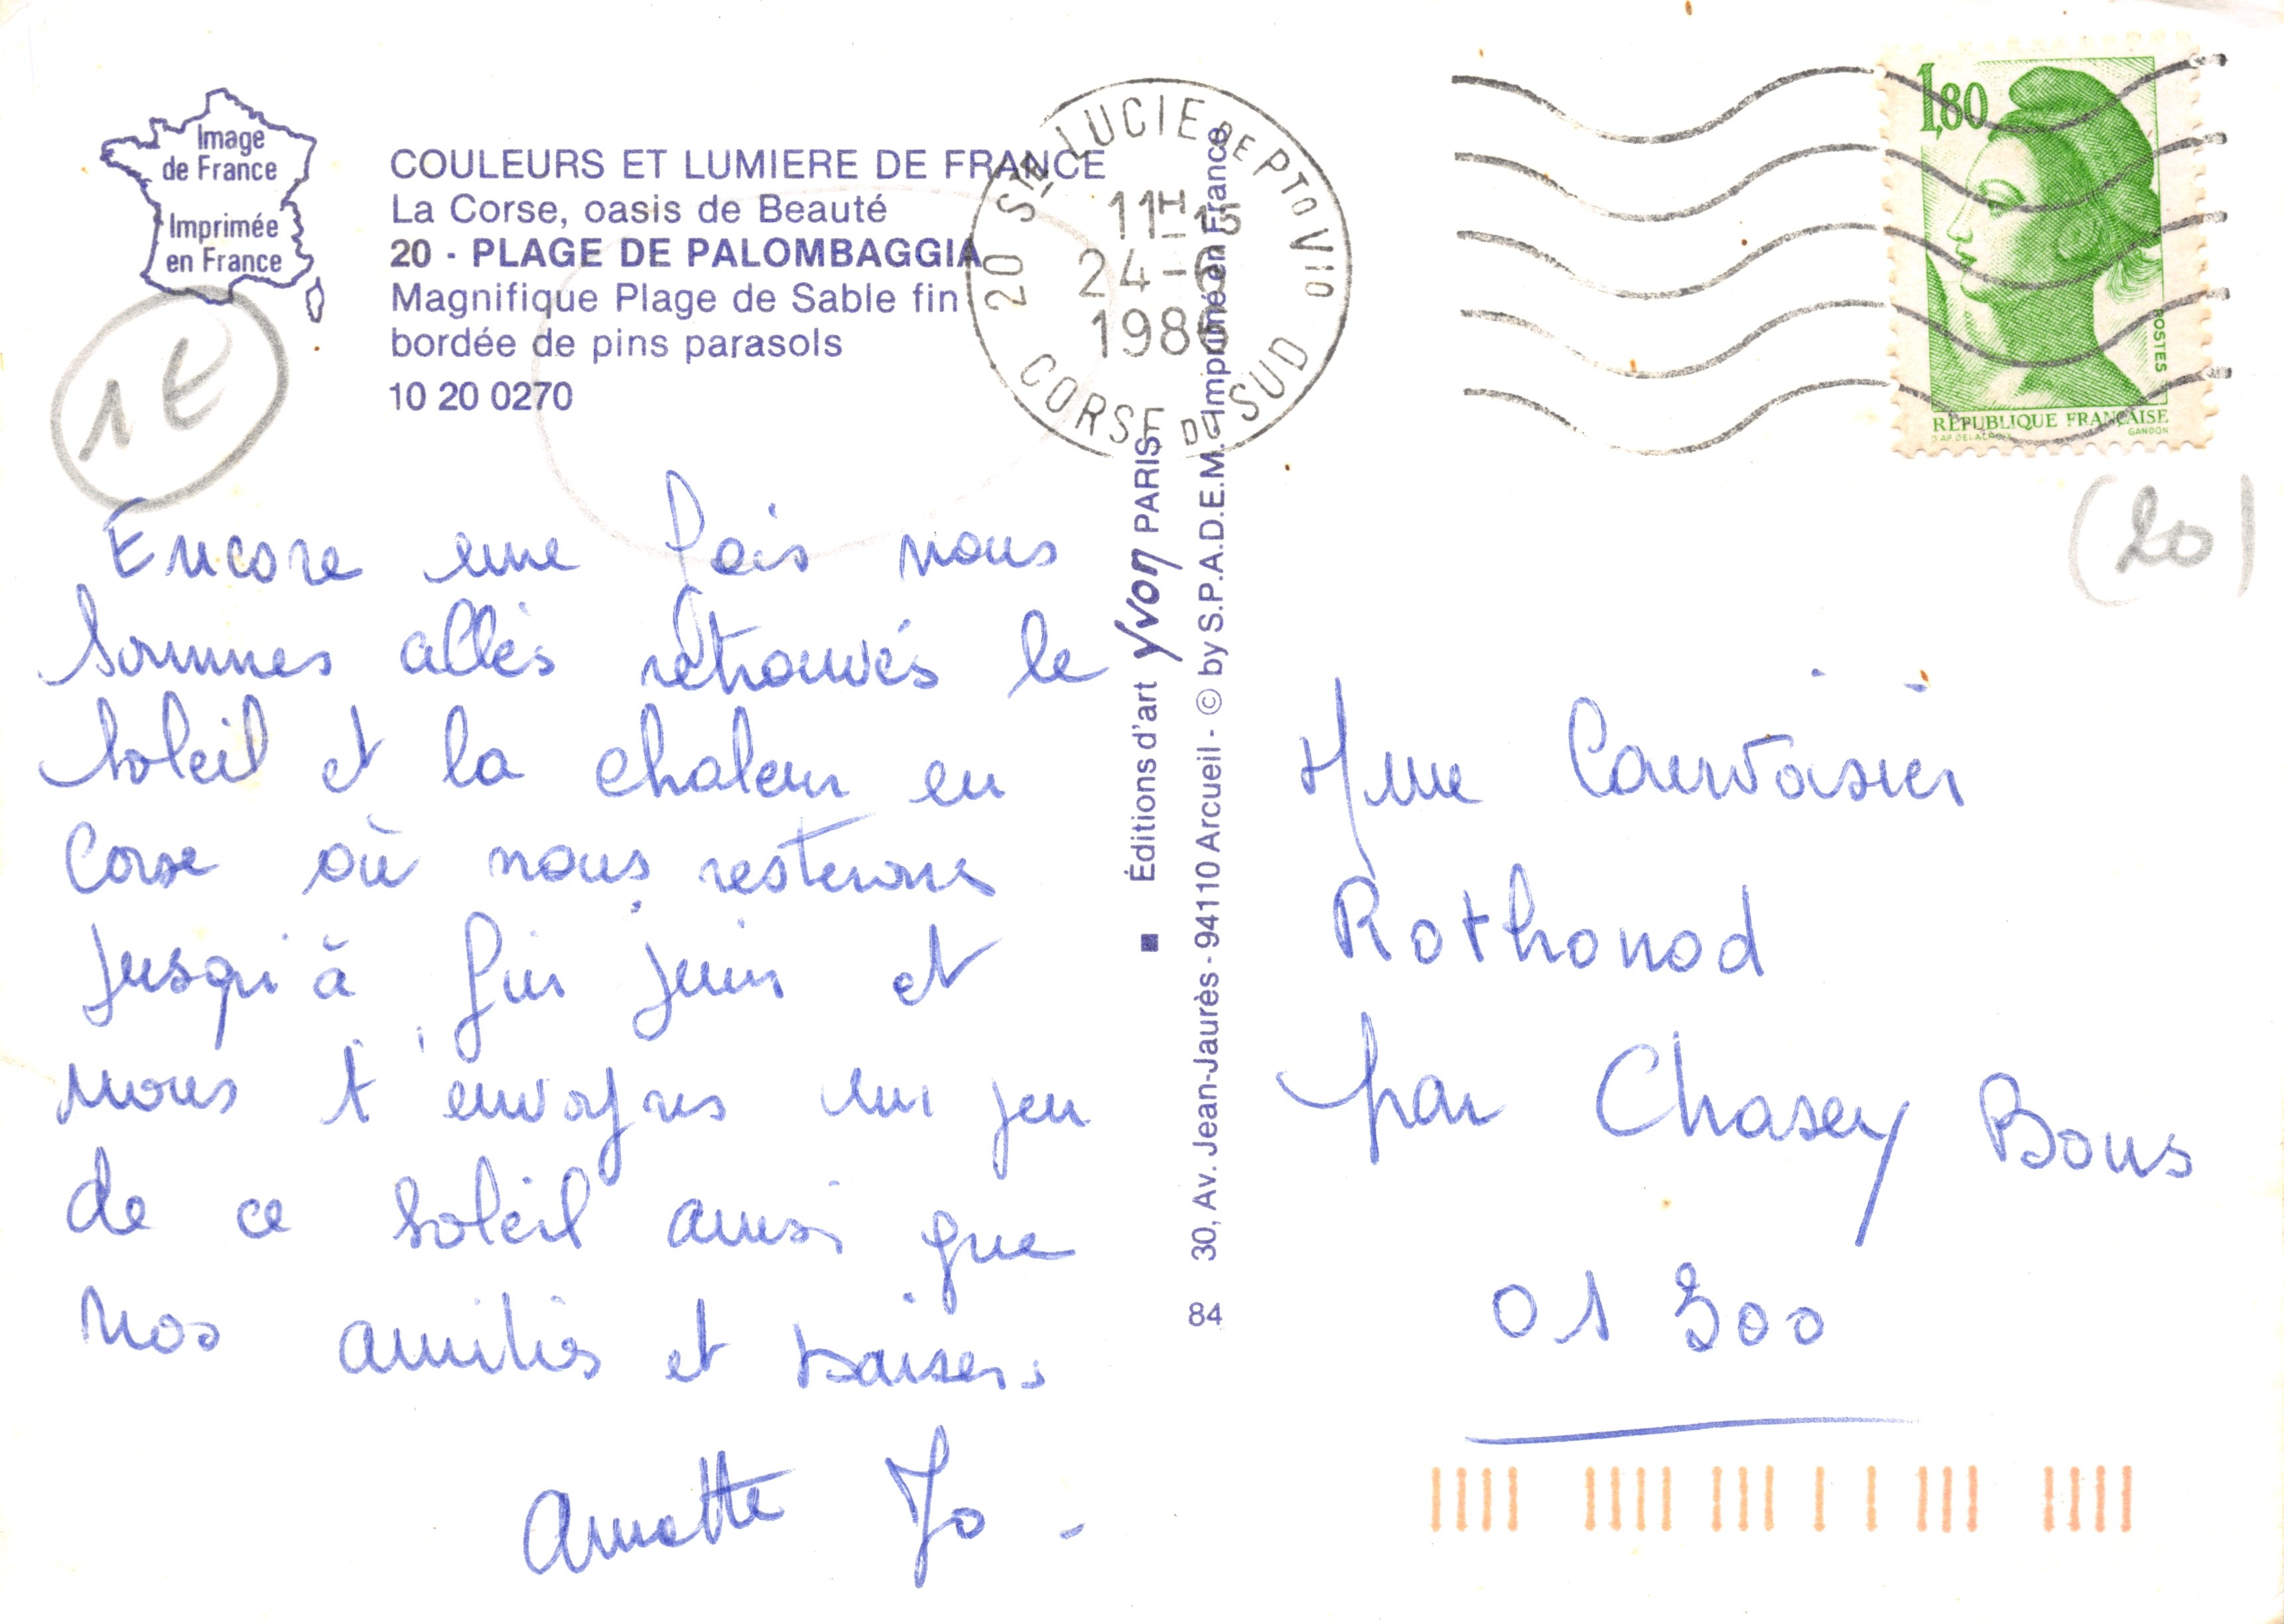 Image
de France
Imprimée
en France
COULEURS ET LUMIERE DE FRANCE
La Corse, oasis de Beauté
20 - PLAGE DE PALOMBAGGIA
Magnifique Plage de Sable fin
bordée de pins parasols
10 20 0270
1€
Encore une fois nous
sommes allés retrouvés le
soleil et la chaleur en
Corse où nous resterons
jusqu'à fin juin et
nous t'envoyons un peu
de ce soleil ainsi que
nos amitiés et baisers
Annette Jo -
Éditions d'art Yvon PARIS
84 30, Av. Jean-Jaurès - 94110 Arcueil - © by S.P.A.D.E.M. - Imprimé en France
20 STE LUCIE DE PTO VIO
11H15
24-6
1986
CORSE DU SUD
1,80
POSTES
REPUBLIQUE FRANÇAISE
GANDON
(20)
Mme
Rothonod
par Chasey Bons
01 300